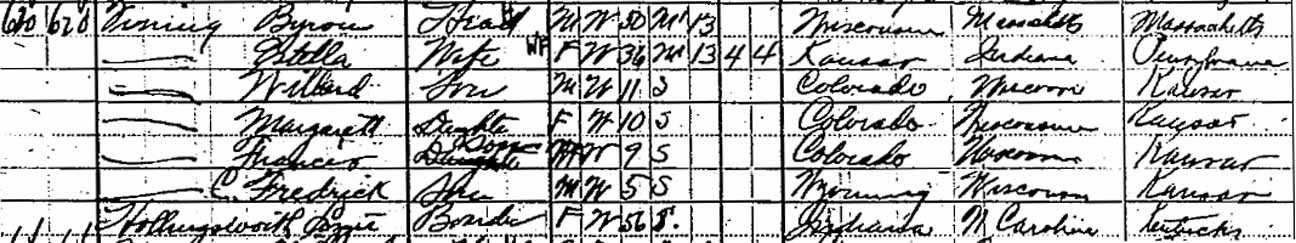 620 620 Vining Byron Head M W 50 M1 13 Wisconsin Massachetts Massachetts
— Estella Wife F W 36 M1 13 4 4 Kansas Indiana Pensylvania
— Willard Son M W 11 S Colorado Wisconsin Kansas
— Margarett Daughter F W 10 S Colorado Wisconsin Kansas
— Frances Daughter W 9 S Colorado Wisconsin Kansas
— C. Fredrick Son M W 5 S Wyoming Wisconsin Kansas
Hollingsworth Boarder F W 56 S. Indiana N Carolina Kentucky